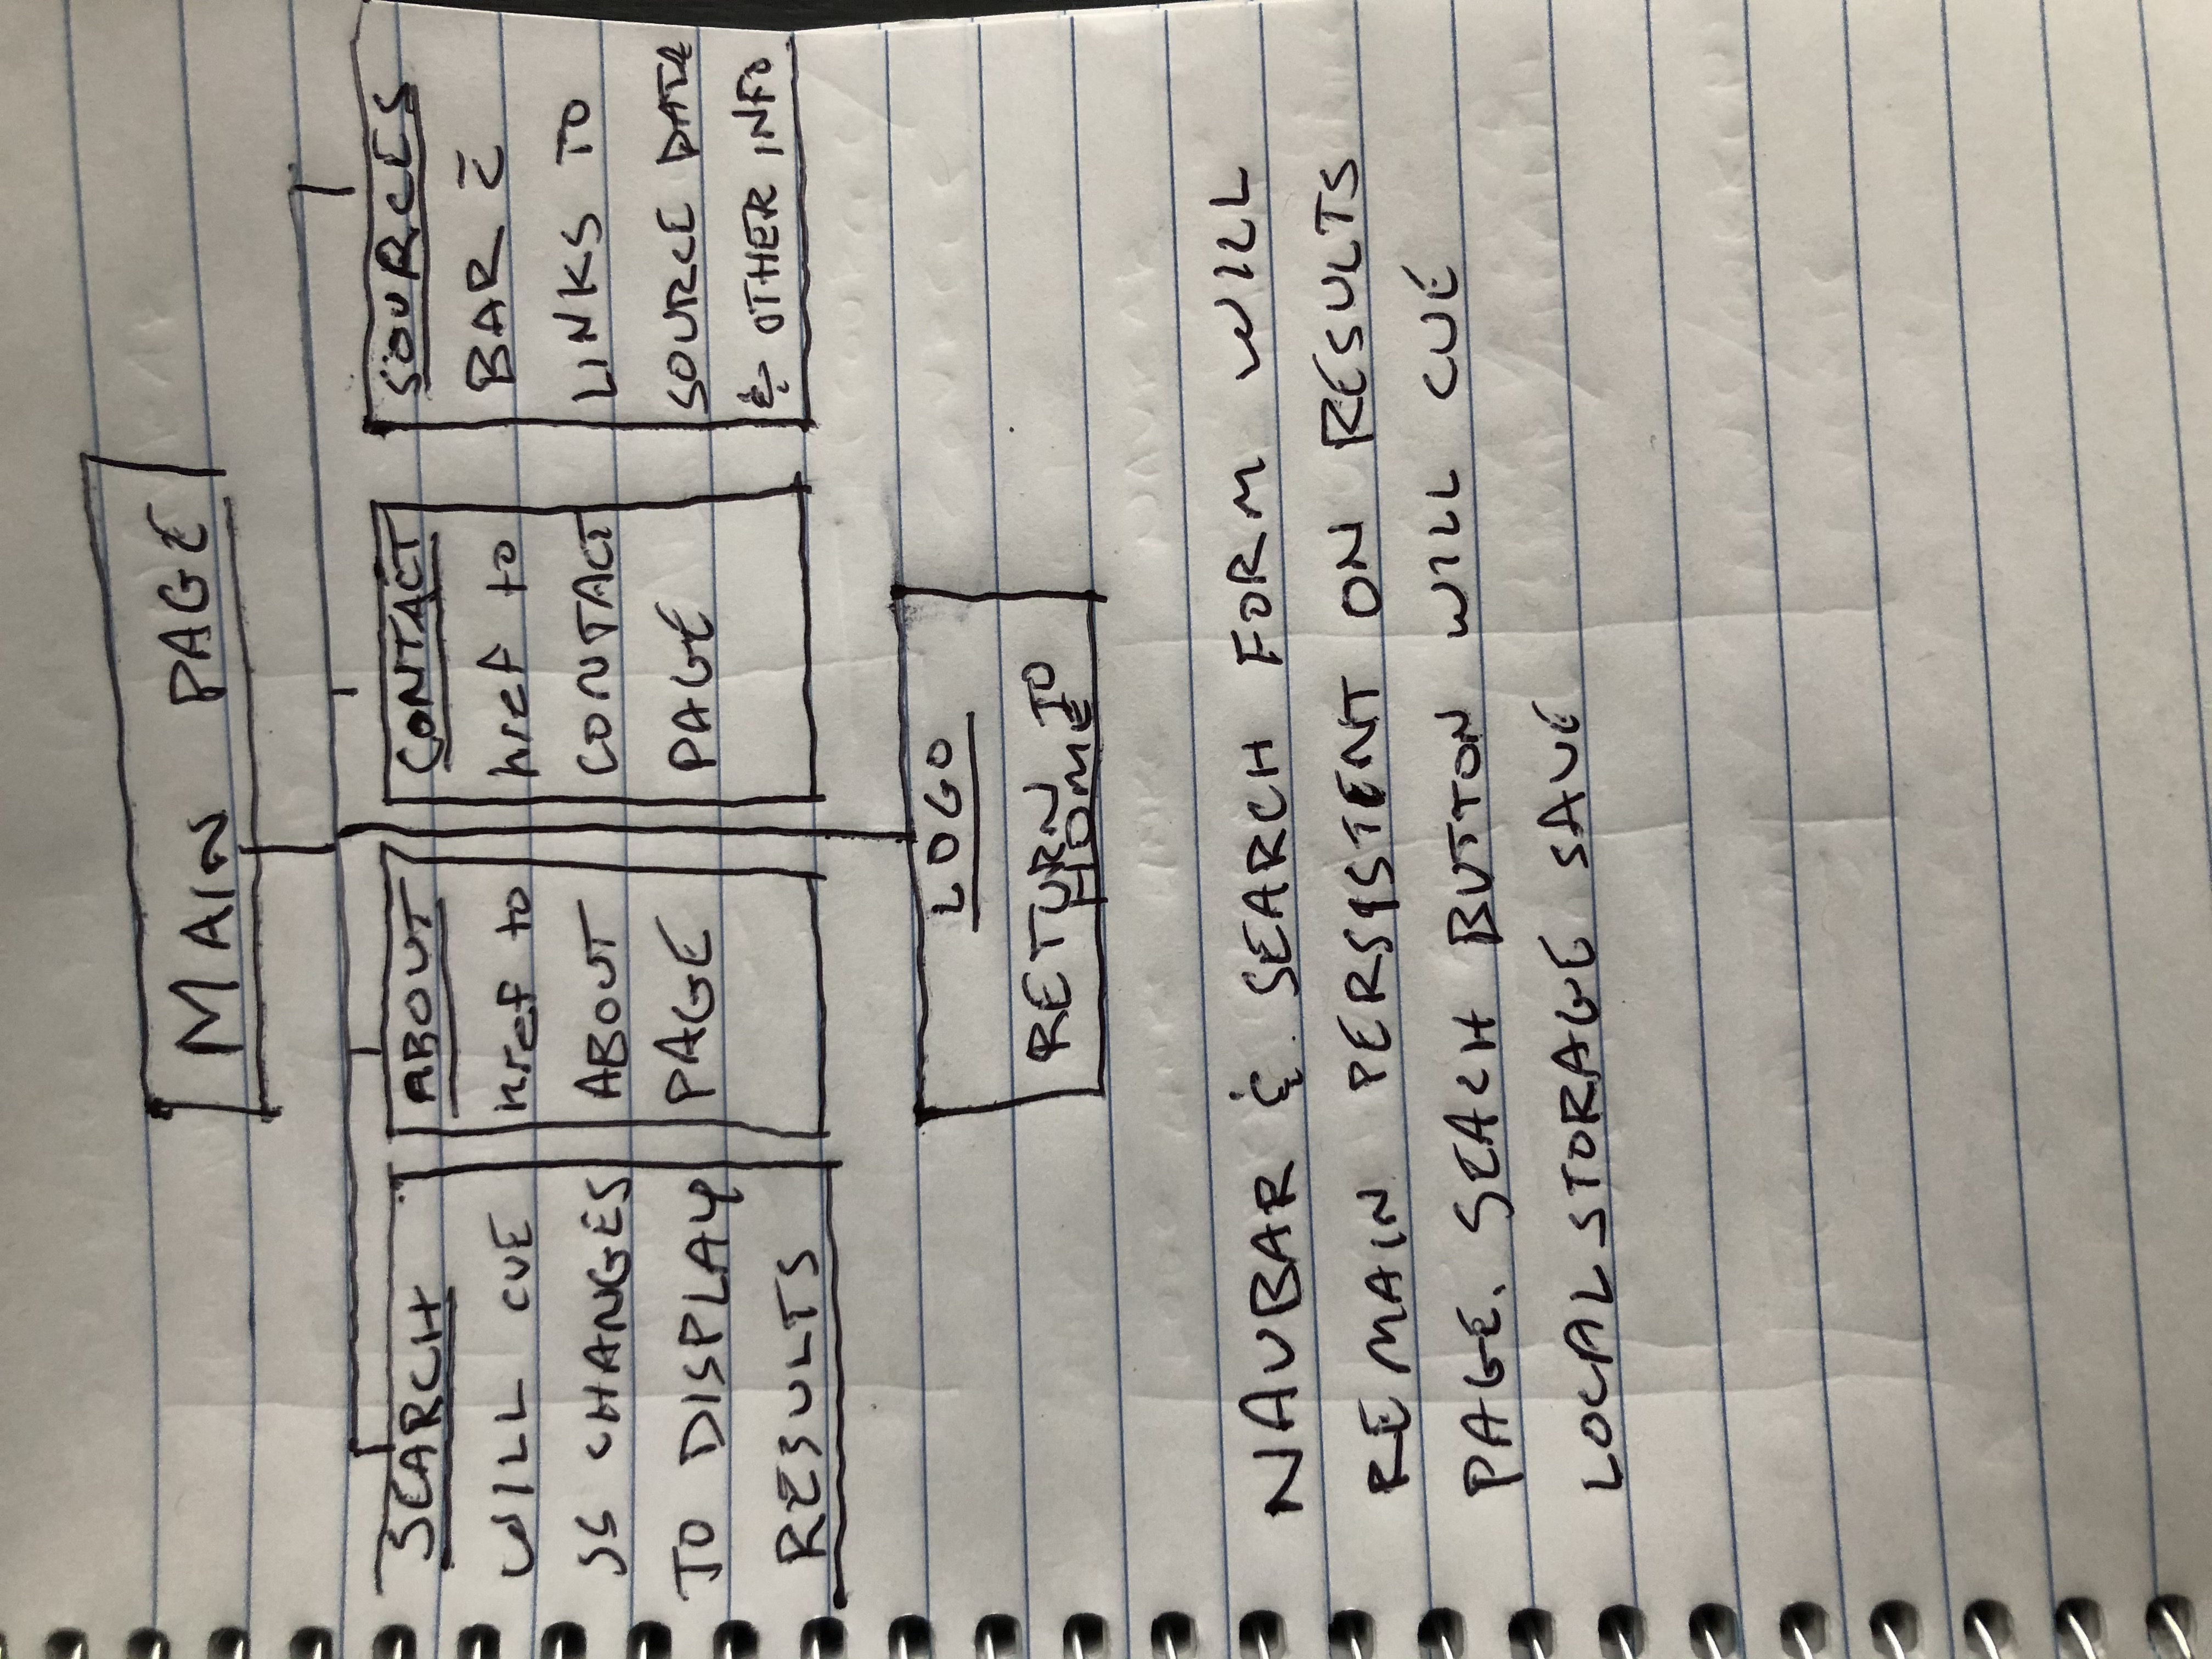 MAIN PAGE
SEARCH
WILL CUE
JS CHANGES
TO DISPLAY
RESULTS
ABOUT
href to
ABOUT
PAGE
CONTACT
href to
CONTACT
PAGE
SOURCES
BAR c̄
LINKS TO
SOURCE DATA
& OTHER INFO
LOGO
RETURN TO
HOME
NAVBAR & SEARCH FORM WILL
REMAIN PERSISTENT ON RESULTS
PAGE. SEACH BUTTON WILL CUE
LOCALSTORAGE SAVE